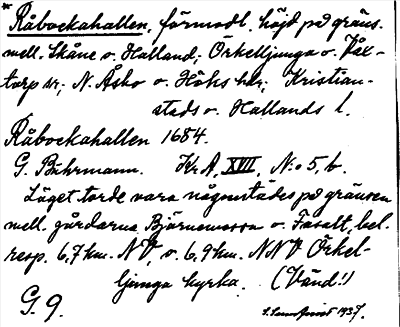 * Råbockahallen, förmodl. höjd på gräns.
mell. Skåne o. Halland; Örkelljunga o. Våx-
torp sr; N. Åsbo o. Höks hdr; Kristian-
stads o. Hallands l.
Råbockahallen 1684.
G. Buhrmann. Kr. A, XVII, N:o 5, b.
Läget torde vara någonstädes på gränsen
mell. gårdarna Björnemossa o. Fasalt, bel.
resp. 6,7 km. NV, o. 6,9 km. NNV Örkel-
ljunga kyrka. (Vänd!)
G. 9. 1937.